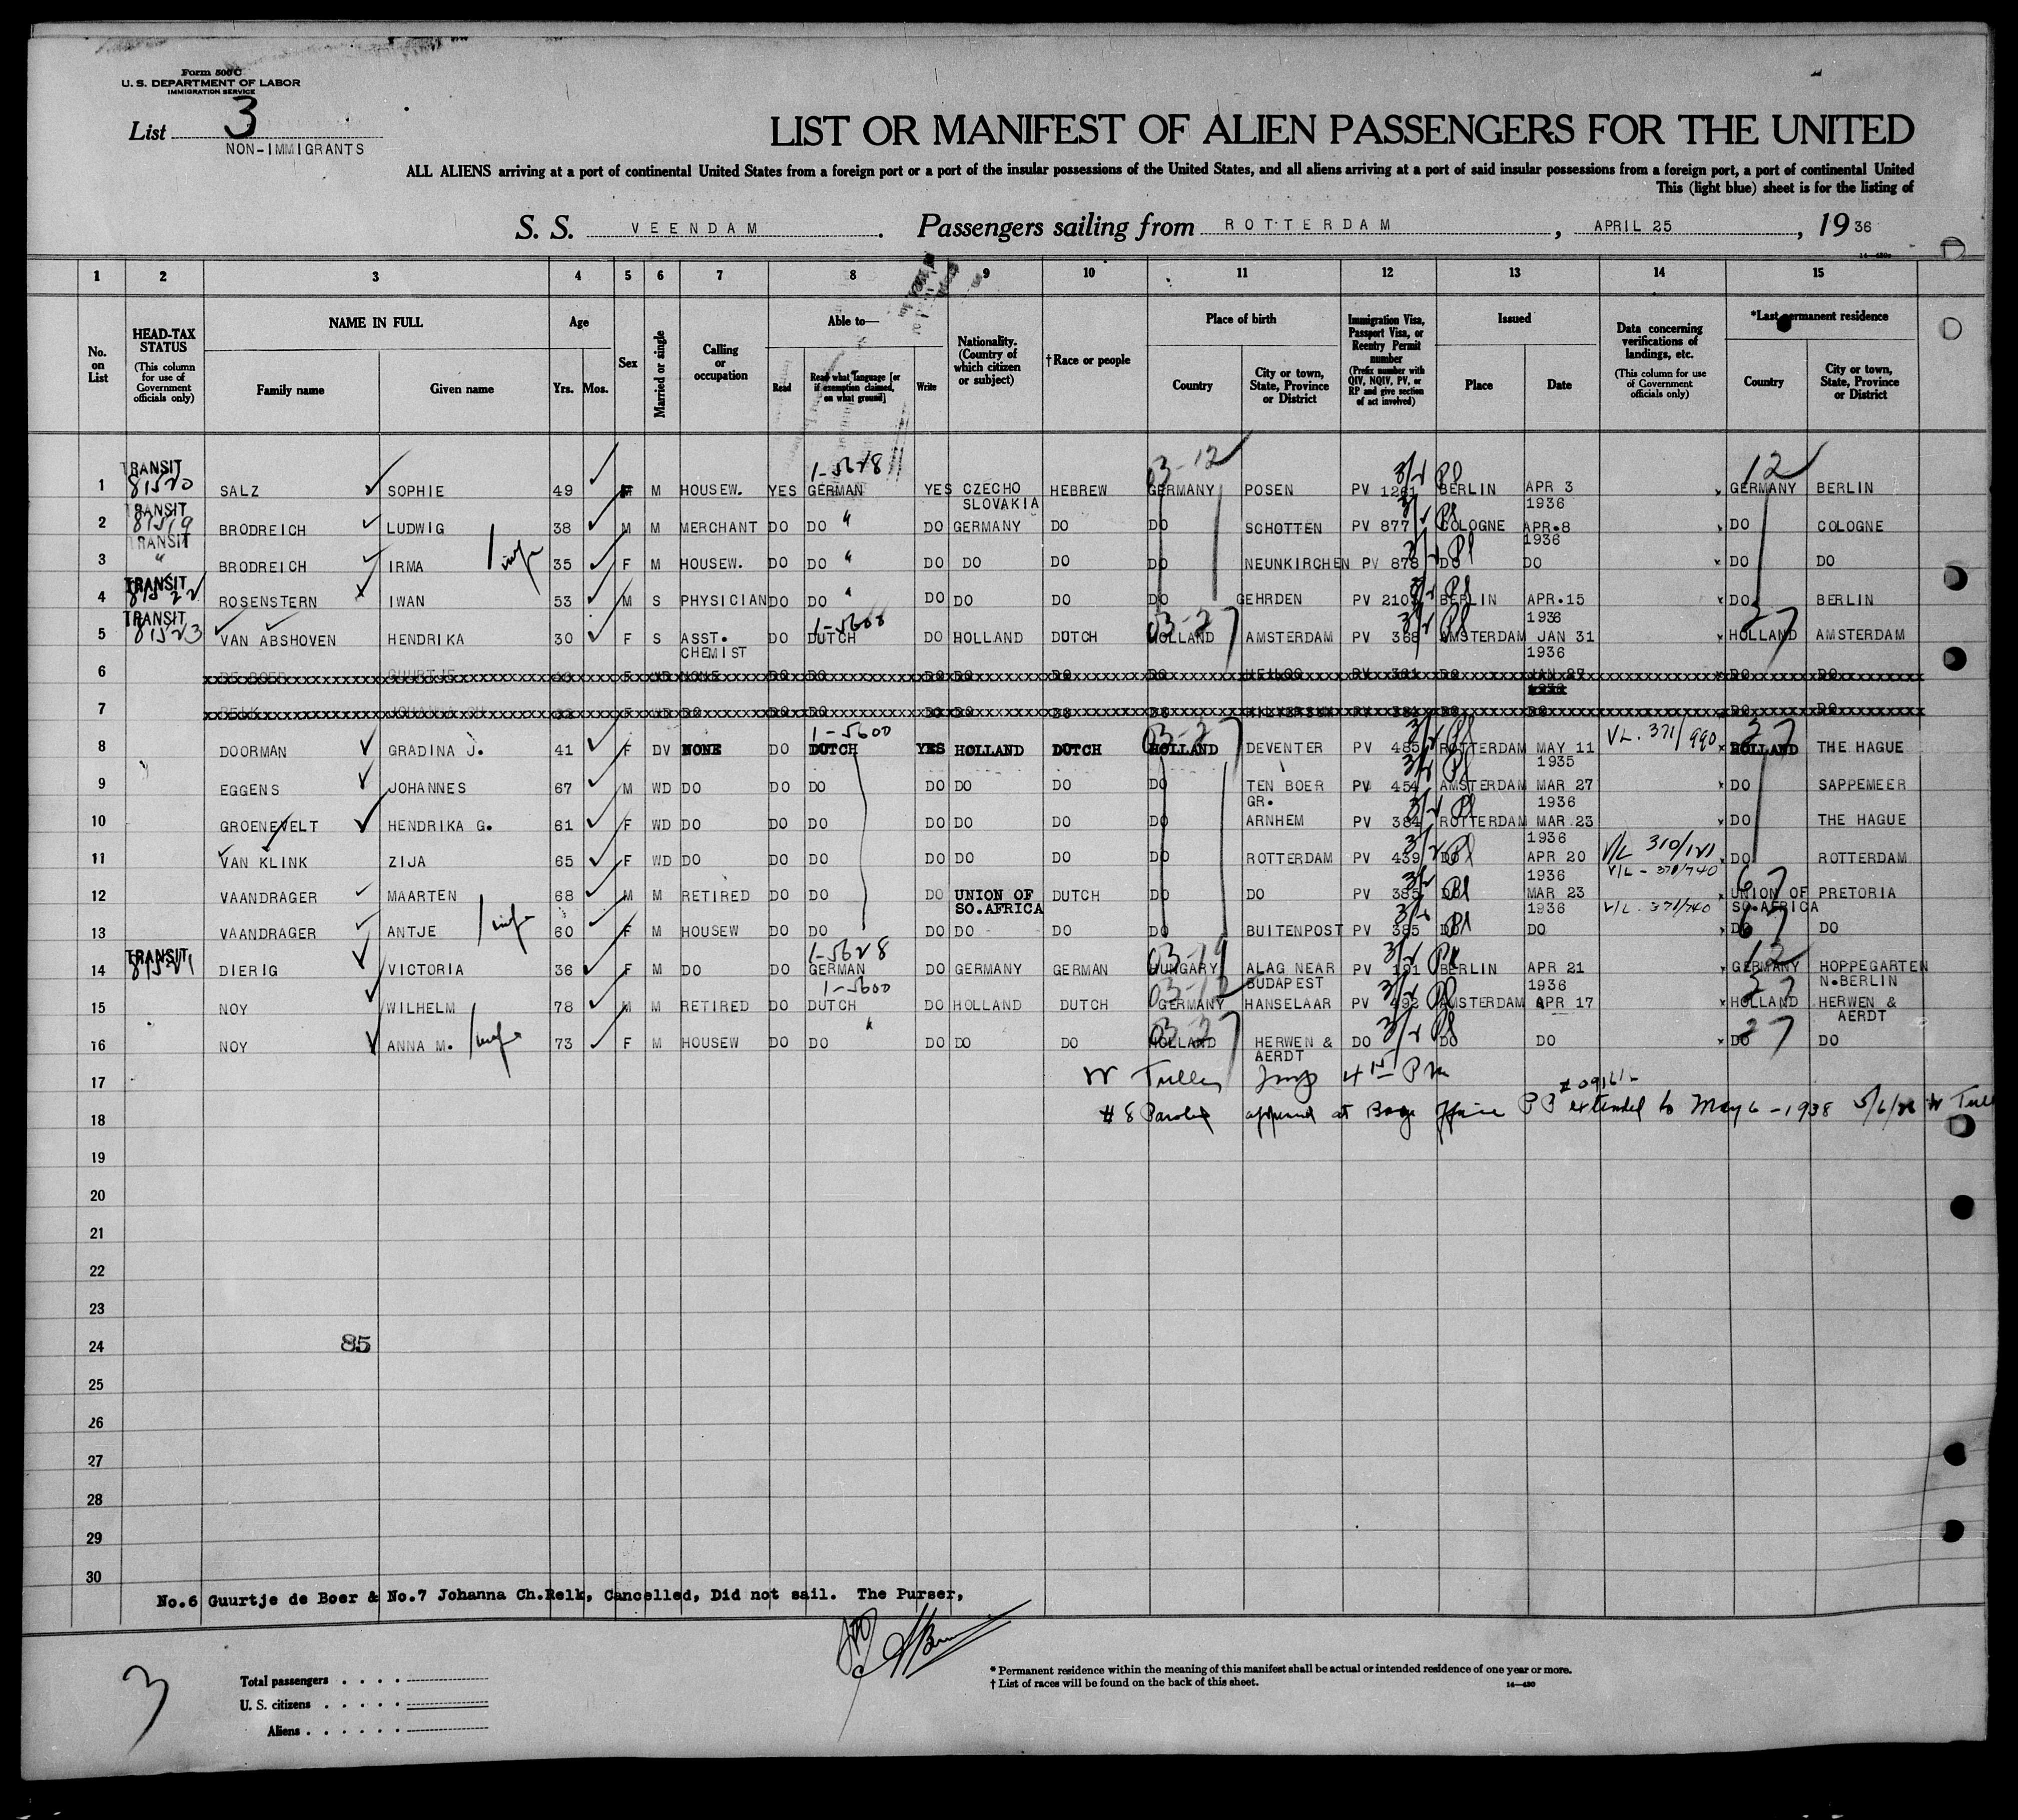 Form 500 C
U. S. DEPARTMENT OF LABOR
IMMIGRATION SERVICE
List 3
NON-IMMIGRANTS
LIST OR MANIFEST OF ALIEN PASSENGERS FOR THE UNITED
ALL ALIENS arriving at a port of continental United States from a foreign port or a port of the insular possessions of the United States, and all aliens arriving at a port of said insular possessions from a foreign port, a port of continental United
This (light blue) sheet is for the listing of
S. S. VEENDAM. Passengers sailing from ROTTERDAM, APRIL 25, 19 36
1 2 3 4 5 6 7 8 9 10 11 12 13 14 15
No. on List
HEAD-TAX STATUS (This column for use of Government officials only)
NAME IN FULL Family name Given name
Age Yrs. Mos.
Sex
Married or single
Calling or occupation
Able to— Read Read what language [or if exemption claimed, on what ground] Write
Nationality. (Country of which citizen or subject)
†Race or people
Place of birth Country City or town, State, Province or District
Immigration Visa, Passport Visa, or Reentry Permit number (Prefix number with QIV, NQIV, PV, or RP and give section of act involved)
Issued Place Date
Data concerning verifications of landings, etc. (This column for use of Government officials only)
*Last permanent residence Country City or town, State, Province or District
1 TRANSIT 81520 SALZ SOPHIE 49 M HOUSEW. YES GERMAN 1-5628 YES CZECHO SLOVAKIA HEBREW GERMANY POSEN PV BERLIN APR 3 1936 GERMANY BERLIN
2 TRANSIT 81519 BRODREICH LUDWIG 38 M M MERCHANT DO DO " DO GERMANY DO DO SCHOTTEN PV 877 COLOGNE APR.8 1936 DO COLOGNE
3 TRANSIT " BRODREICH IRMA 35 F M HOUSEW. DO DO " DO DO DO DO NEUNKIRCHEN PV 878 DO DO DO DO
4 TRANSIT 81522 ROSENSTERN IWAN 53 M S PHYSICIAN DO DO " DO DO DO DO GEHRDEN PV BERLIN APR.15 1936 DO BERLIN
5 TRANSIT 81523 VAN ABSHOVEN HENDRIKA 30 F S ASST. CHEMIST DO DUTCH DO HOLLAND DUTCH HOLLAND AMSTERDAM PV 368 AMSTERDAM JAN 31 1936 HOLLAND AMSTERDAM
6
7
8 DOORMAN GRADINA J. 41 F DV NONE DO DUTCH 1-5600 YES HOLLAND DUTCH HOLLAND DEVENTER PV 485 ROTTERDAM MAY 11 1935 VL. 371/990 HOLLAND THE HAGUE
9 EGGENS JOHANNES 67 M WD DO DO DO DO DO DO DO TEN BOER GR. PV 454 AMSTERDAM MAR 27 1936 DO SAPPEMEER
10 GROENEVELT HENDRIKA G. 61 F WD DO DO DO DO DO DO DO ARNHEM PV 384 ROTTERDAM MAR 23 1936 DO THE HAGUE
11 VAN KLINK ZIJA 65 F WD DO DO DO DO DO DO DO ROTTERDAM PV 439 DO APR 20 1936 DO ROTTERDAM
12 VAANDRAGER MAARTEN 68 M M RETIRED DO DO DO UNION OF SO.AFRICA DUTCH DO DO PV 385 DO MAR 23 1936 V/L - 371/740 UNION OF SO.AFRICA PRETORIA
13 VAANDRAGER ANTJE 60 F M HOUSEW DO DO DO DO DO DO BUITENPOST PV 385 DO DO V/L. 371/740 DO DO
14 TRANSIT 81521 DIERIG VICTORIA 36 F M DO DO GERMAN 1-5628 DO GERMANY GERMAN HUNGARY ALAG NEAR BUDAPEST PV BERLIN APR 21 1936 GERMANY HOPPEGARTEN N.BERLIN
15 NOY WILHELM 78 M M RETIRED DO DUTCH 1-5600 DO HOLLAND DUTCH GERMANY HANSELAAR PV 492 AMSTERDAM APR 17 HOLLAND HERWEN & AERDT
16 NOY ANNA M. 73 F M HOUSEW DO DO " DO DO DO HOLLAND HERWEN & AERDT DO DO DO DO DO
17
18 # 8 Paroled at extended to May 6 - 1938
19
20
21
22
23
24 85
25
26
27
28
29
30
No.6 Guurtje de Boer & No.7 Johanna Ch.Relk, Cancelled, Did not sail. The Purser,
3
Total passengers
U. S. citizens
Aliens
* Permanent residence within the meaning of this manifest shall be actual or intended residence of one year or more.
† List of races will be found on the back of this sheet.
14—430